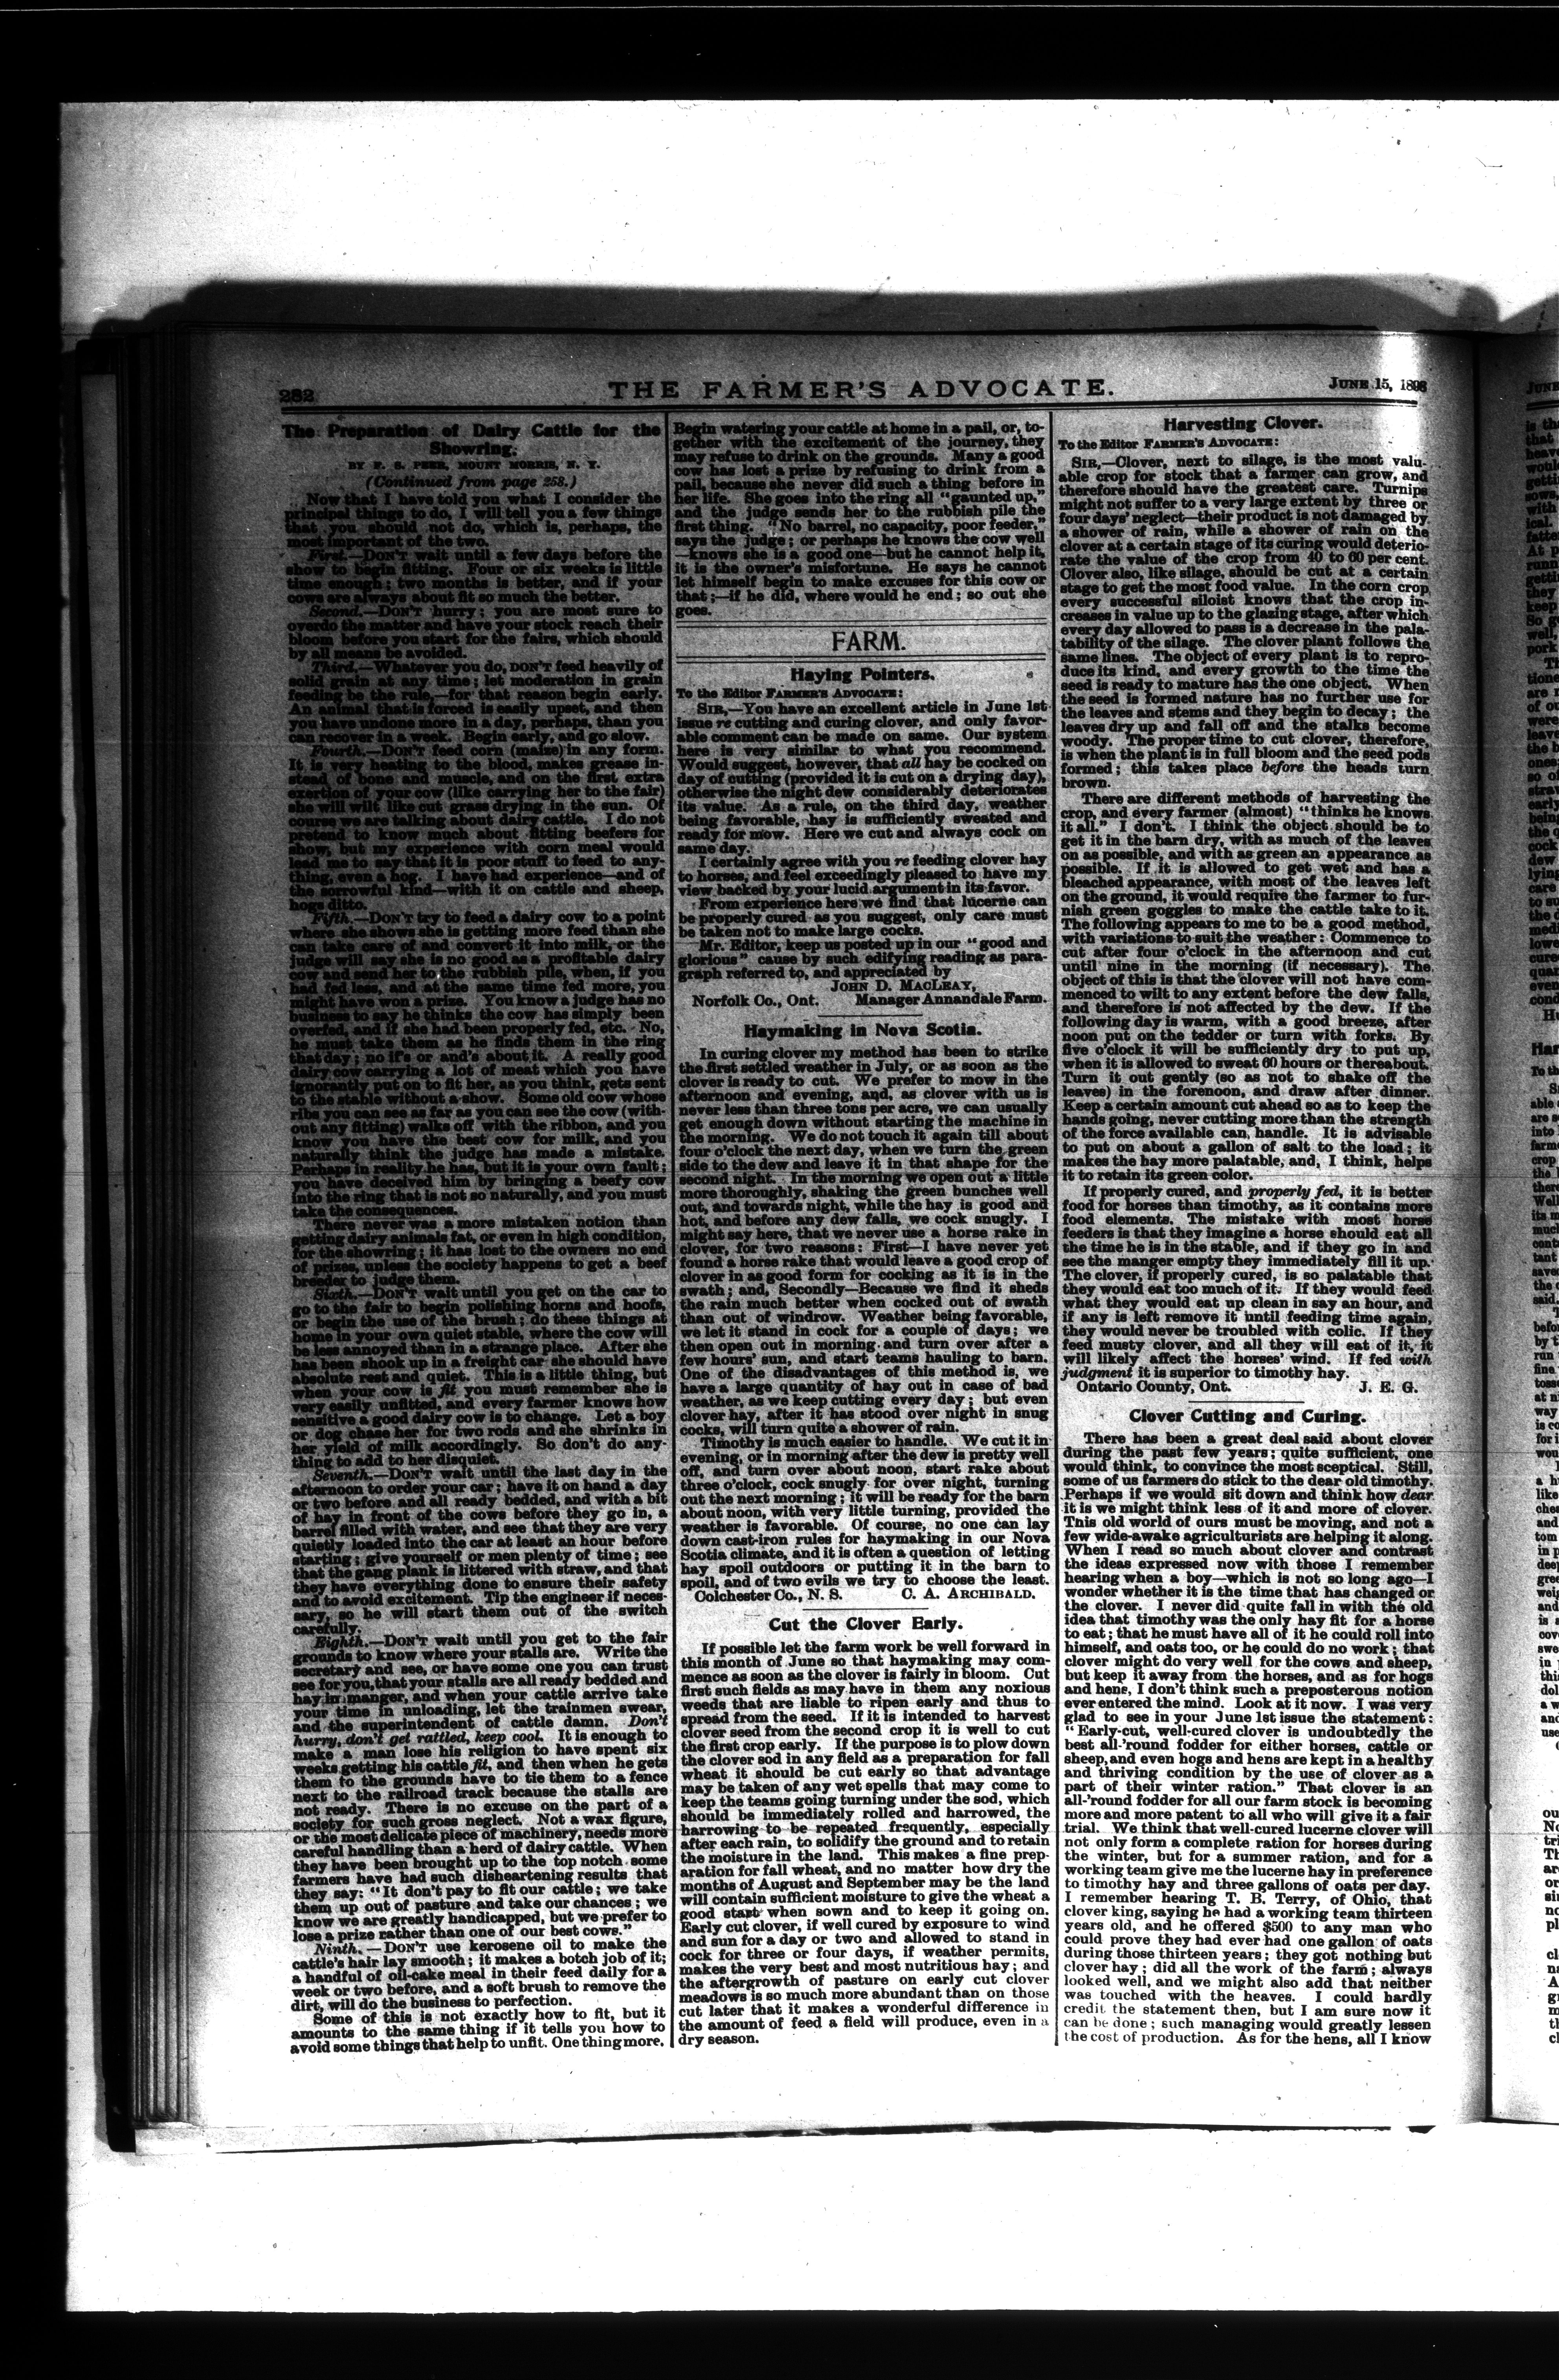 282
THE FARMER'S ADVOCATE.
JUNE 15, 1898
The Preparation of Dairy Cattle for the
Showring.
BY F. S. PEER, MOUNT MORRIS, N. Y.
(Continued from page 258.)
Now that I have told you what I consider the
principal things to do, I will tell you a few things
that you should not do, which is, perhaps, the
most important of the two.
First.—DON'T wait until a few days before the
show to begin fitting. Four or six weeks is little
time enough; two months is better, and if your
cows are always about fit so much the better.
Second.—DON'T hurry; you are most sure to
overdo the matter and have your stock reach their
bloom before you start for the fairs, which should
by all means be avoided.
Third.—Whatever you do, DON'T feed heavily of
solid grain at any time; let moderation in grain
feeding be the rule,—for that reason begin early.
An animal that is forced is easily upset, and then
you have undone more in a day, perhaps, than you
can recover in a week. Begin early, and go slow.
Fourth.—DON'T feed corn (maize) in any form.
It is very heating to the blood, makes grease in-
stead of bone and muscle, and on the first extra
exertion of your cow (like carrying her to the fair)
she will wilt like cut grass drying in the sun. Of
course we are talking about dairy cattle. I do not
pretend to know much about fitting beefers for
show, but my experience with corn meal would
lead me to say that it is poor stuff to feed to any-
thing, even a hog. I have had experience—and of
the sorrowful kind—with it on cattle and sheep,
hogs ditto.
Fifth.—DON'T try to feed a dairy cow to a point
where she shows she is getting more feed than she
can take care of and convert it into milk, or the
judge will say she is no good as a profitable dairy
cow and send her to the rubbish pile, when, if you
had fed less, and at the same time fed more, you
might have won a prize. You know a judge has no
business to say he thinks the cow has simply been
overfed, and if she had been properly fed, etc. No,
he must take them as he finds them in the ring
that day; no if's or and's about it. A really good
dairy cow carrying a lot of meat which you have
ignorantly put on to fit her, as you think, gets sent
to the stable without a show. Some old cow whose
ribs you can see as far as you can see the cow (with-
out any fitting) walks off with the ribbon, and you
know you have the best cow for milk, and you
naturally think the judge has made a mistake.
Perhaps in reality he has, but it is your own fault;
you have deceived him by bringing a beefy cow
into the ring that is not so naturally, and you must
take the consequences.
There never was a more mistaken notion than
getting dairy animals fat, or even in high condition,
for the showring; it has lost to the owners no end
of prizes, unless the society happens to get a beef
breeder to judge them.
Sixth.—DON'T wait until you get on the car to
go to the fair to begin polishing horns and hoofs,
or begin the use of the brush; do these things at
home in your own quiet stable, where the cow will
be less annoyed than in a strange place. After she
has been shook up in a freight car she should have
absolute rest and quiet. This is a little thing, but
when your cow is fit you must remember she is
very easily unfitted, and every farmer knows how
sensitive a good dairy cow is to change. Let a boy
or dog chase her for two rods and she shrinks in
her yield of milk accordingly. So don't do any-
thing to add to her disquiet.
Seventh.—DON'T wait until the last day in the
afternoon to order your car; have it on hand a day
or two before and all ready bedded, and with a bit
of hay in front of the cows before they go in, a
barrel filled with water, and see that they are very
quietly loaded into the car at least an hour before
starting; give yourself or men plenty of time; see
that the gang plank is littered with straw, and that
they have everything done to ensure their safety
and to avoid excitement. Tip the engineer if neces-
sary, so he will start them out of the switch
carefully.
Eighth.—DON'T wait until you get to the fair
grounds to know where your stalls are. Write the
secretary and see, or have some one you can trust
see for you, that your stalls are all ready bedded and
hay in manger, and when your cattle arrive take
your time in unloading, let the trainmen swear,
and the superintendent of cattle damn. Don't
hurry, don't get rattled, keep cool. It is enough to
make a man lose his religion to have spent six
weeks getting his cattle fit, and then when he gets
them to the grounds have to tie them to a fence
next to the railroad track because the stalls are
not ready. There is no excuse on the part of a
society for such gross neglect. Not a wax figure,
or the most delicate piece of machinery, needs more
careful handling than a herd of dairy cattle. When
they have been brought up to the top notch some
farmers have had such disheartening results that
they say: "It don't pay to fit our cattle; we take
them up out of pasture and take our chances; we
know we are greatly handicapped, but we prefer to
lose a prize rather than one of our best cows."
Ninth.—DON'T use kerosene oil to make the
cattle's hair lay smooth; it makes a botch job of it;
a handful of oil-cake meal in their feed daily for a
week or two before, and a soft brush to remove the
dirt, will do the business to perfection.
Some of this is not exactly how to fit, but it
amounts to the same thing if it tells you how to
avoid some things that help to unfit. One thing more.
Begin watering your cattle at home in a pail, or, to-
gether with the excitement of the journey, they
may refuse to drink on the grounds. Many a good
cow has lost a prize by refusing to drink from a
pail, because she never did such a thing before in
her life. She goes into the ring all "gaunted up,"
and the judge sends her to the rubbish pile the
first thing. "No barrel, no capacity, poor feeder,"
says the judge; or perhaps he knows the cow well
—knows she is a good one—but he cannot help it,
it is the owner's misfortune. He says he cannot
let himself begin to make excuses for this cow or
that;—if he did, where would he end; so out she
goes.
FARM.
Haying Pointers.
To the Editor FARMER'S ADVOCATE:
SIR,—You have an excellent article in June 1st
issue re cutting and curing clover, and only favor-
able comment can be made on same. Our system
here is very similar to what you recommend.
Would suggest, however, that all hay be cocked on
day of cutting (provided it is cut on a drying day),
otherwise the night dew considerably deteriorates
its value. As a rule, on the third day, weather
being favorable, hay is sufficiently sweated and
ready for mow. Here we cut and always cock on
same day.
I certainly agree with you re feeding clover hay
to horses, and feel exceedingly pleased to have my
view backed by your lucid argument in its favor.
From experience here we find that lucerne can
be properly cured as you suggest, only care must
be taken not to make large cocks.
Mr. Editor, keep us posted up in our "good and
glorious" cause by such edifying reading as para-
graph referred to, and appreciated by
JOHN D. MACLEAY,
Norfolk Co., Ont. Manager Annandale Farm.
Haymaking in Nova Scotia.
In curing clover my method has been to strike
the first settled weather in July, or as soon as the
clover is ready to cut. We prefer to mow in the
afternoon and evening, and, as clover with us is
never less than three tons per acre, we can usually
get enough down without starting the machine in
the morning. We do not touch it again till about
four o'clock the next day, when we turn the green
side to the dew and leave it in that shape for the
second night. In the morning we open out a little
more thoroughly, shaking the green bunches well
out, and towards night, while the hay is good and
hot, and before any dew falls, we cock snugly. I
might say here, that we never use a horse rake in
clover, for two reasons: First—I have never yet
found a horse rake that would leave a good crop of
clover in as good form for cocking as it is in the
swath; and, Secondly—Because we find it sheds
the rain much better when cocked out of swath
than out of windrow. Weather being favorable,
we let it stand in cock for a couple of days; we
then open out in morning and turn over after a
few hours' sun, and start teams hauling to barn.
One of the disadvantages of this method is, we
have a large quantity of hay out in case of bad
weather, as we keep cutting every day; but even
clover hay, after it has stood over night in snug
cocks, will turn quite a shower of rain.
Timothy is much easier to handle. We cut it in
evening, or in morning after the dew is pretty well
off, and turn over about noon, start rake about
three o'clock, cock snugly for over night, turning
out the next morning; it will be ready for the barn
about noon, with very little turning, provided the
weather is favorable. Of course, no one can lay
down cast-iron rules for haymaking in our Nova
Scotia climate, and it is often a question of letting
hay spoil outdoors or putting it in the barn to
spoil, and of two evils we try to choose the least.
Colchester Co., N. S. C. A. ARCHIBALD.
Cut the Clover Early.
If possible let the farm work be well forward in
this month of June so that haymaking may com-
mence as soon as the clover is fairly in bloom. Cut
first such fields as may have in them any noxious
weeds that are liable to ripen early and thus to
spread from the seed. If it is intended to harvest
clover seed from the second crop it is well to cut
the first crop early. If the purpose is to plow down
the clover sod in any field as a preparation for fall
wheat it should be cut early so that advantage
may be taken of any wet spells that may come to
keep the teams going turning under the sod, which
should be immediately rolled and harrowed, the
harrowing to be repeated frequently, especially
after each rain, to solidify the ground and to retain
the moisture in the land. This makes a fine prep-
aration for fall wheat, and no matter how dry the
months of August and September may be the land
will contain sufficient moisture to give the wheat a
good start when sown and to keep it going on.
Early cut clover, if well cured by exposure to wind
and sun for a day or two and allowed to stand in
cock for three or four days, if weather permits,
makes the very best and most nutritious hay; and
the aftergrowth of pasture on early cut clover
meadows is so much more abundant than on those
cut later that it makes a wonderful difference in
the amount of feed a field will produce, even in a
dry season.
Harvesting Clover.
To the Editor FARMER'S ADVOCATE:
SIR,—Clover, next to silage, is the most valu-
able crop for stock that a farmer can grow, and
therefore should have the greatest care. Turnips
might not suffer to a very large extent by three or
four days' neglect—their product is not damaged by
a shower of rain, while a shower of rain on the
clover at a certain stage of its curing would deterio-
rate the value of the crop from 40 to 60 per cent.
Clover also, like silage, should be cut at a certain
stage to get the most food value. In the corn crop
every successful siloist knows that the crop in-
creases in value up to the glazing stage, after which
every day allowed to pass is a decrease in the pala-
tability of the silage. The clover plant follows the
same lines. The object of every plant is to repro-
duce its kind, and every growth to the time the
seed is ready to mature has the one object. When
the seed is formed nature has no further use for
the leaves and stems and they begin to decay; the
leaves dry up and fall off and the stalks become
woody. The proper time to cut clover, therefore,
is when the plant is in full bloom and the seed pods
formed; this takes place before the heads turn
brown.
There are different methods of harvesting the
crop, and every farmer (almost) "thinks he knows
it all." I don't. I think the object should be to
get it in the barn dry, with as much of the leaves
on as possible, and with as green an appearance as
possible. If it is allowed to get wet and has a
bleached appearance, with most of the leaves left
on the ground, it would require the farmer to fur-
nish green goggles to make the cattle take to it.
The following appears to me to be a good method,
with variations to suit the weather: Commence to
cut after four o'clock in the afternoon and cut
until nine in the morning (if necessary). The
object of this is that the clover will not have com-
menced to wilt to any extent before the dew falls,
and therefore is not affected by the dew. If the
following day is warm, with a good breeze, after
noon put on the tedder or turn with forks. By
five o'clock it will be sufficiently dry to put up,
when it is allowed to sweat 60 hours or thereabout.
Turn it out gently (so as not to shake off the
leaves) in the forenoon, and draw after dinner.
Keep a certain amount cut ahead so as to keep the
hands going, never cutting more than the strength
of the force available can handle. It is advisable
to put on about a gallon of salt to the load; it
makes the hay more palatable, and, I think, helps
it to retain its green color.
If properly cured, and properly fed, it is better
food for horses than timothy, as it contains more
food elements. The mistake with most horse
feeders is that they imagine a horse should eat all
the time he is in the stable, and if they go in and
see the manger empty they immediately fill it up.
The clover, if properly cured, is so palatable that
they would eat too much of it. If they would feed
what they would eat up clean in say an hour, and
if any is left remove it until feeding time again,
they would never be troubled with colic. If they
feed musty clover, and all they will eat of it, it
will likely affect the horses' wind. If fed with
judgment it is superior to timothy hay.
Ontario County, Ont. J. E. G.
Clover Cutting and Curing.
There has been a great deal said about clover
during the past few years; quite sufficient, one
would think, to convince the most sceptical. Still,
some of us farmers do stick to the dear old timothy.
Perhaps if we would sit down and think how dear
it is we might think less of it and more of clover.
This old world of ours must be moving, and not a
few wide-awake agriculturists are helping it along.
When I read so much about clover and contrast
the ideas expressed now with those I remember
hearing when a boy—which is not so long ago—I
wonder whether it is the time that has changed or
the clover. I never did quite fall in with the old
idea that timothy was the only hay fit for a horse
to eat; that he must have all of it he could roll into
himself, and oats too, or he could do no work; that
clover might do very well for the cows and sheep,
but keep it away from the horses, and as for hogs
and hens, I don't think such a preposterous notion
ever entered the mind. Look at it now. I was very
glad to see in your June 1st issue the statement:
"Early-cut, well-cured clover is undoubtedly the
best all-'round fodder for either horses, cattle or
sheep, and even hogs and hens are kept in a healthy
and thriving condition by the use of clover as a
part of their winter ration." That clover is an
all-'round fodder for all our farm stock is becoming
more and more patent to all who will give it a fair
trial. We think that well-cured lucerne clover will
not only form a complete ration for horses during
the winter, but for a summer ration, and for a
working team give me the lucerne hay in preference
to timothy hay and three gallons of oats per day.
I remember hearing T. B. Terry, of Ohio, that
clover king, saying he had a working team thirteen
years old, and he offered $500 to any man who
could prove they had ever had one gallon of oats
during those thirteen years; they got nothing but
clover hay; did all the work of the farm; always
looked well, and we might also add that neither
was touched with the heaves. I could hardly
credit the statement then, but I am sure now it
can be done; such managing would greatly lessen
the cost of production. As for the hens, all I know